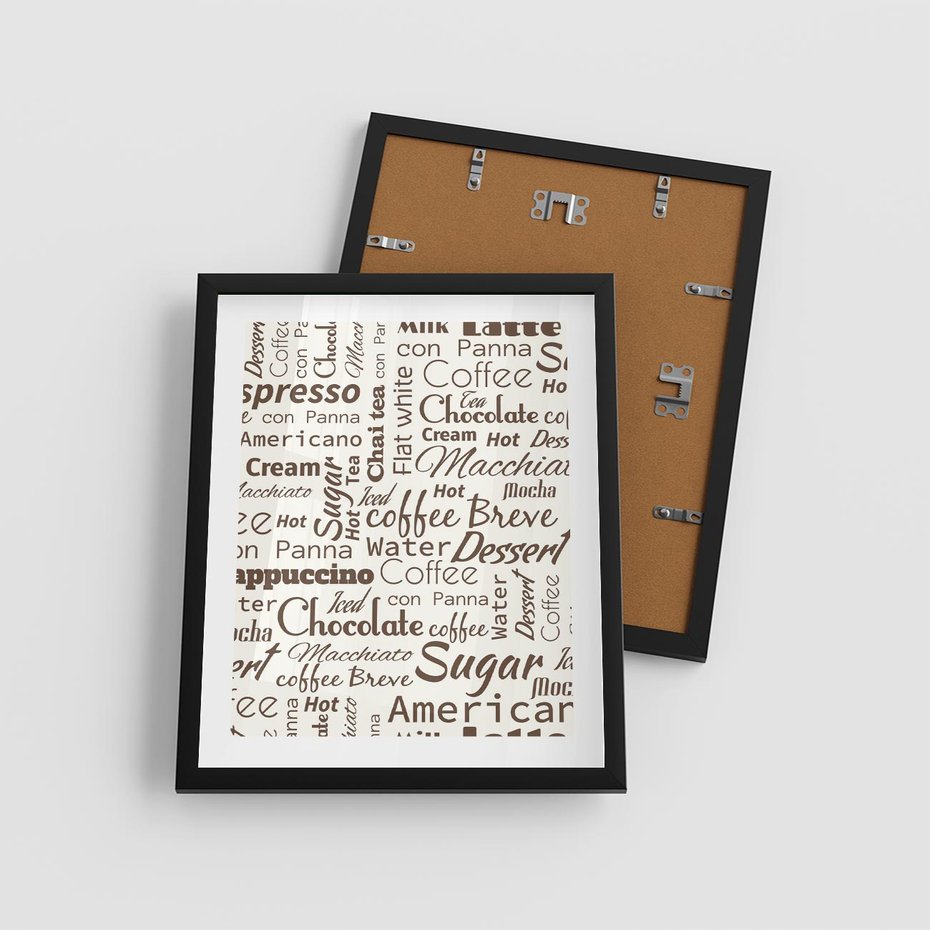 Dessert
Coffee
con Pa
Chocol
Macc
con Pan
Milk Latte
con Panna
Coffee
Ho
spresso
con Panna
Americano
Chai tea
Flat white
Tea
Chocolate cof
Cream Hot Dess
Macchiat
Cream
Sugar
Tea
Hot
Macchiato
Iced
Hot
Mocha
ee Hot
coffee Breve
on Panna
Water Dessert
appuccino Coffee
ter
Iced
con Panna
Water
Dessert
Coffee
ocha
Chocolate coffee
ert
Macchiato
coffee Breve
Sugar
Ic
Moc
fee
anna
Hot
ate
iato
anna
American
Milk Latte